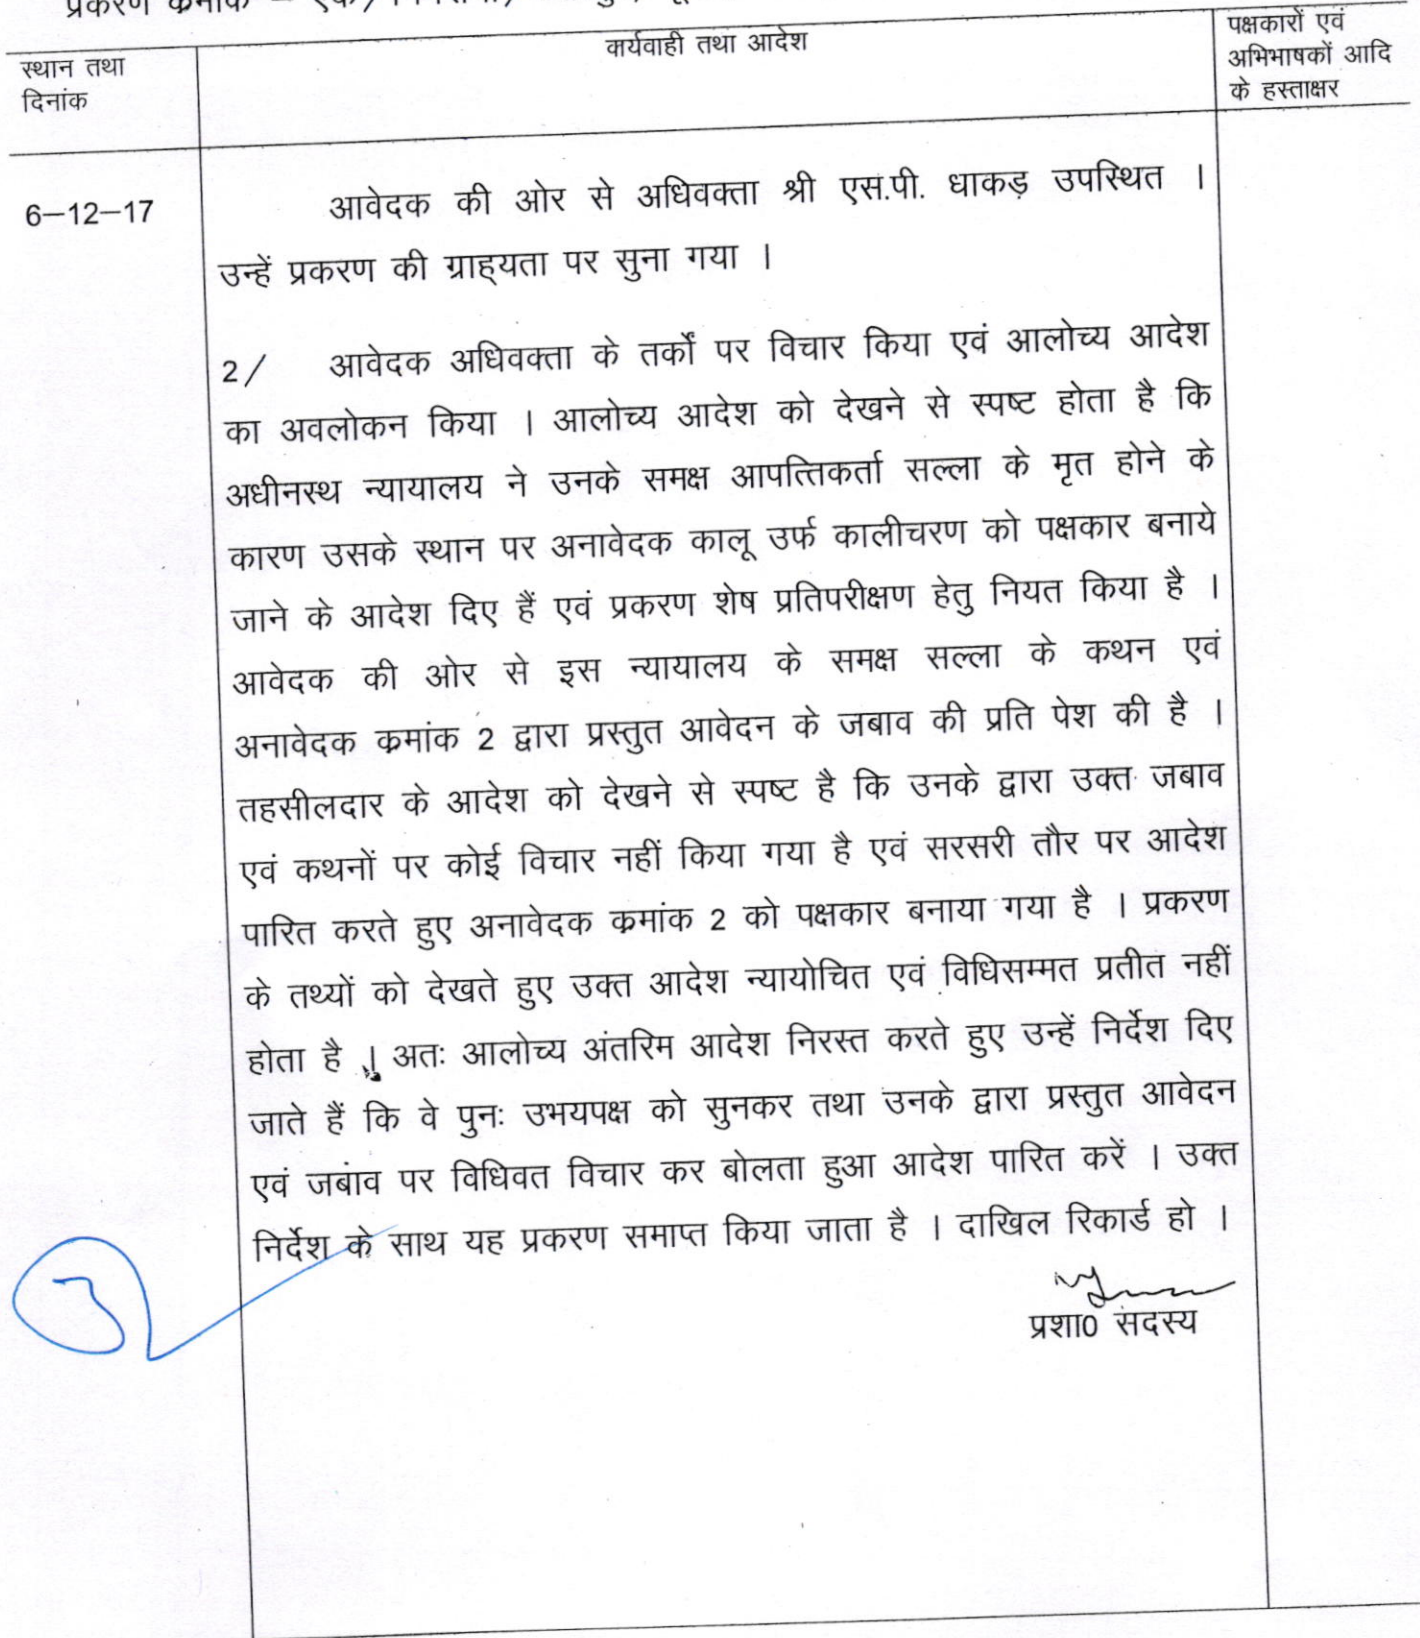 प्रकरण क्रमांक – एक/
स्थान तथा
दिनांक
कार्यवाही तथा आदेश
पक्षकारों एवं
अभिभाषकों आदि
के हस्ताक्षर
6–12–17
आवेदक की ओर से अधिवक्ता श्री एस.पी. धाकड़ उपस्थित ।
उन्हें प्रकरण की ग्राह्यता पर सुना गया ।
2/ आवेदक अधिवक्ता के तर्कों पर विचार किया एवं आलोच्य आदेश
का अवलोकन किया । आलोच्य आदेश को देखने से स्पष्ट होता है कि
अधीनस्थ न्यायालय ने उनके समक्ष आपत्तिकर्ता सल्ला के मृत होने के
कारण उसके स्थान पर अनावेदक कालू उर्फ कालीचरण को पक्षकार बनाये
जाने के आदेश दिए हैं एवं प्रकरण शेष प्रतिपरीक्षण हेतु नियत किया है ।
आवेदक की ओर से इस न्यायालय के समक्ष सल्ला के कथन एवं
अनावेदक क्रमांक 2 द्वारा प्रस्तुत आवेदन के जबाव की प्रति पेश की है ।
तहसीलदार के आदेश को देखने से स्पष्ट है कि उनके द्वारा उक्त जबाव
एवं कथनों पर कोई विचार नहीं किया गया है एवं सरसरी तौर पर आदेश
पारित करते हुए अनावेदक क्रमांक 2 को पक्षकार बनाया गया है । प्रकरण
के तथ्यों को देखते हुए उक्त आदेश न्यायोचित एवं विधिसम्मत प्रतीत नहीं
होता है । अतः आलोच्य अंतरिम आदेश निरस्त करते हुए उन्हें निर्देश दिए
जाते हैं कि वे पुनः उभयपक्ष को सुनकर तथा उनके द्वारा प्रस्तुत आवेदन
एवं जबाव पर विधिवत विचार कर बोलता हुआ आदेश पारित करें । उक्त
निर्देश के साथ यह प्रकरण समाप्त किया जाता है । दाखिल रिकार्ड हो ।
प्रशा0 सदस्य